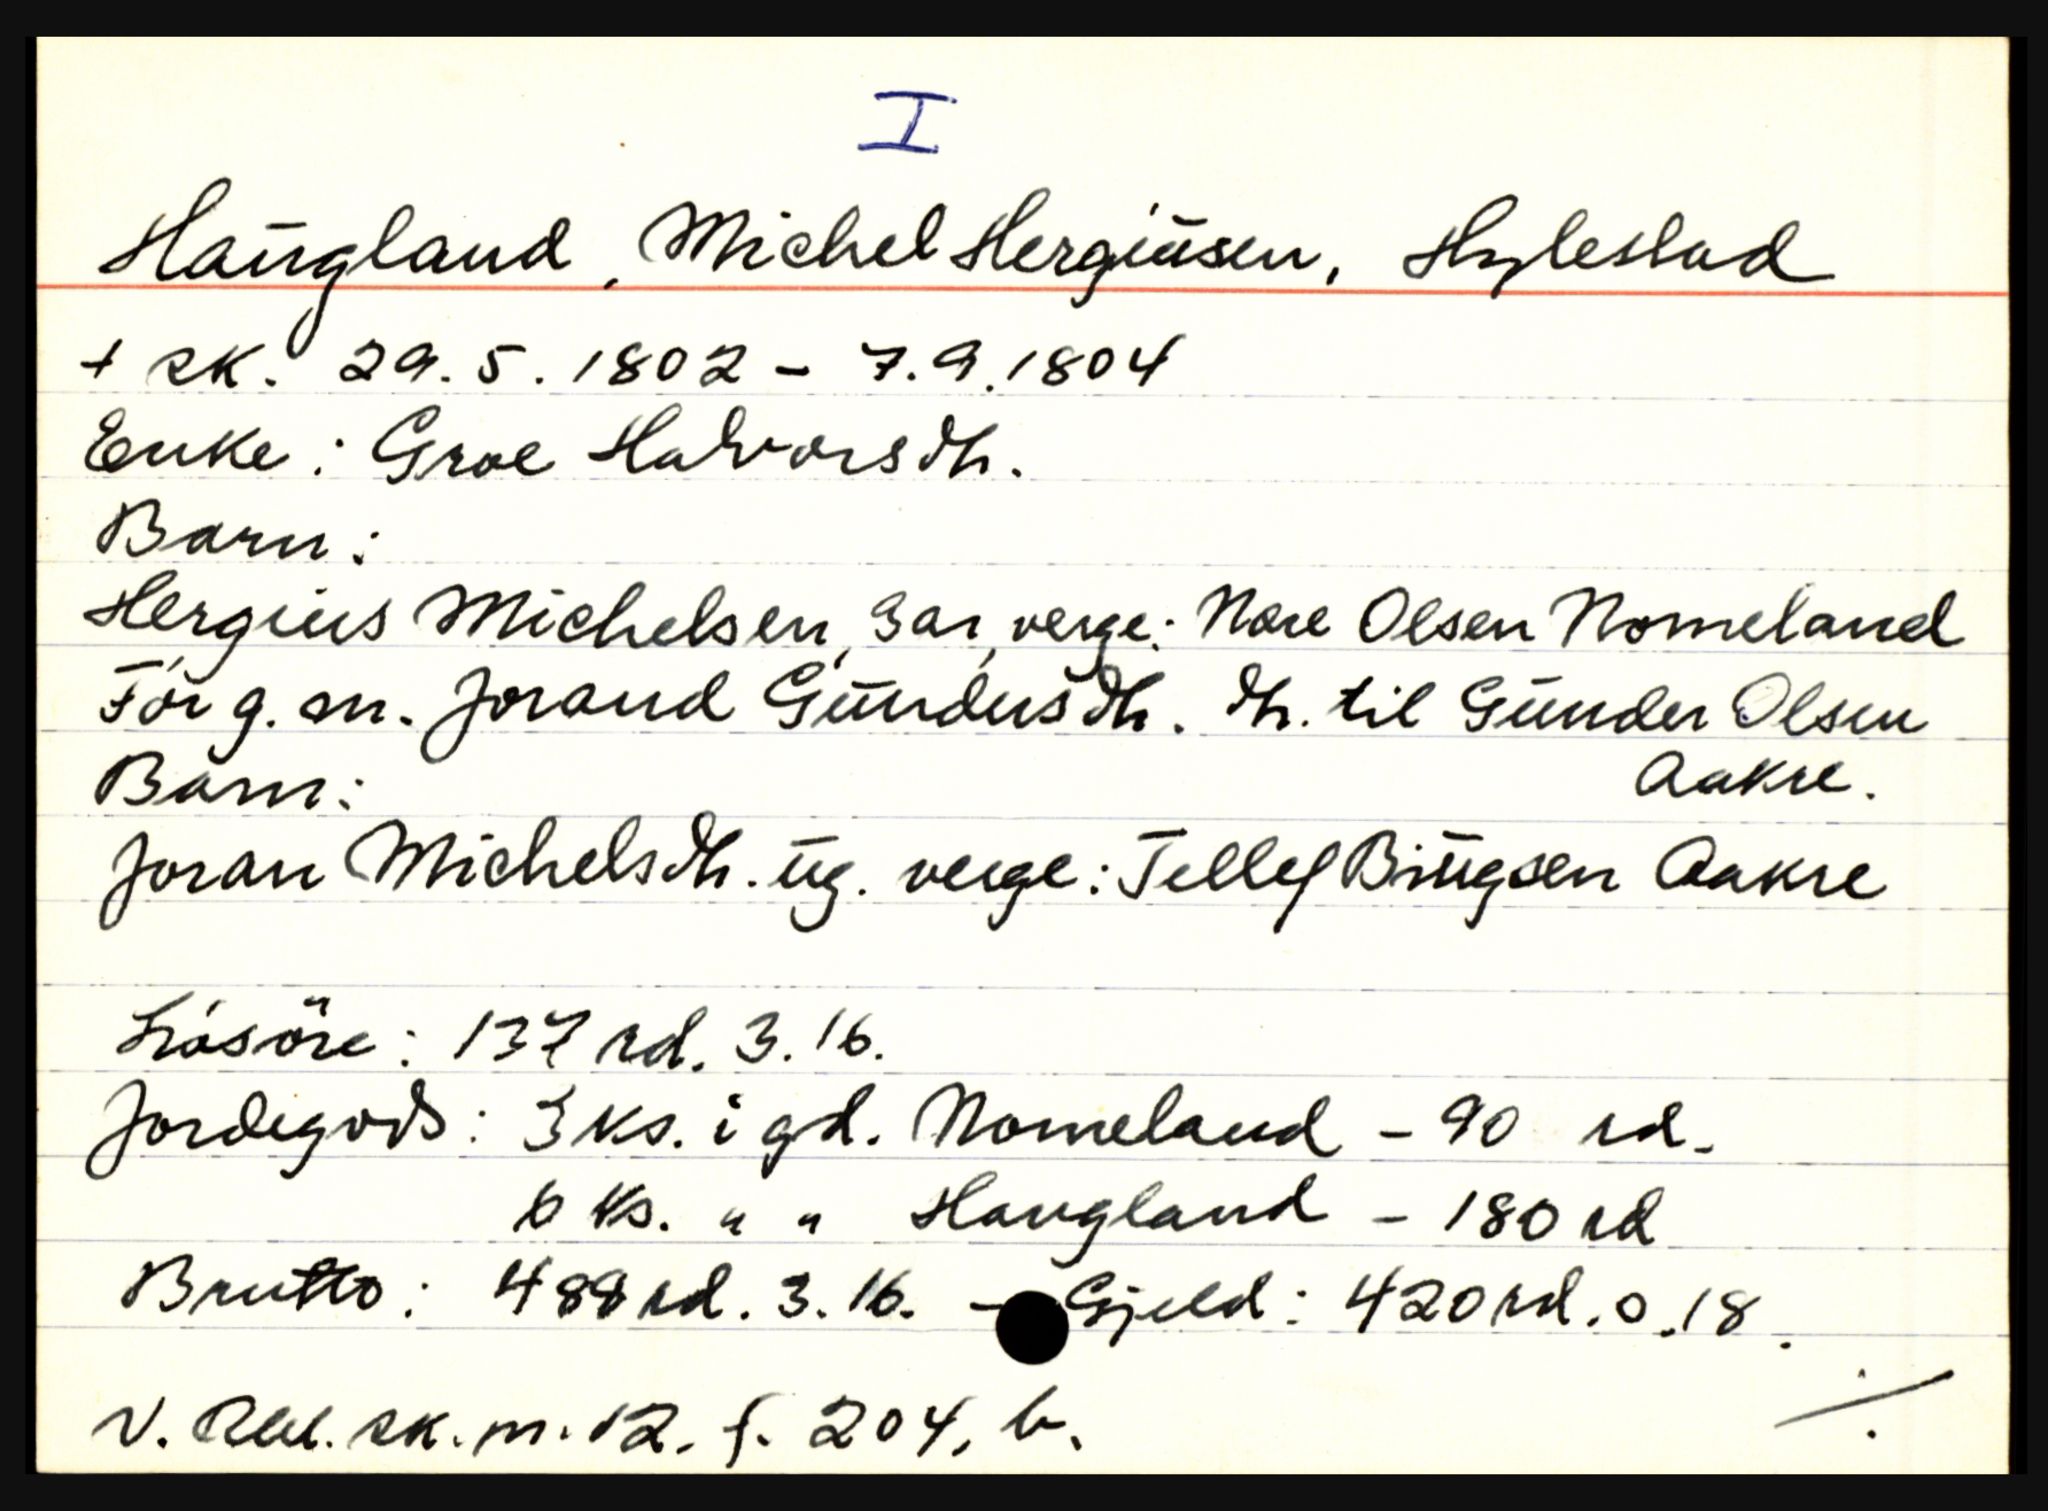 I
Haugland, Michel Hergiusen, Hylestad
+ sk. 29.5.1802 - 7.9.1804
Enke: Groe Halvorsdtr.
Barn:
Hergius Michelsen, 3 år, verge: Nære Olsen Nomeland
För g. m. Jorand Gundersdtr. dtr. til Gunder Olsen
Aakre.
Barn:
Joran Michelsdtr. ug. verge: Tellef Bjugsen Aakre
Lösöre: 137 rd. 3.16.
Jordegods: 3 ks. i gd. Nomeland - 90 rd.
6 ks. " " Haugland - 180 rd
Brutto: 488 rd. 3.16. - Gjeld: 420 rd. 0.18.
V. Rbl. sk. m. 12. f. 204, b.
./.